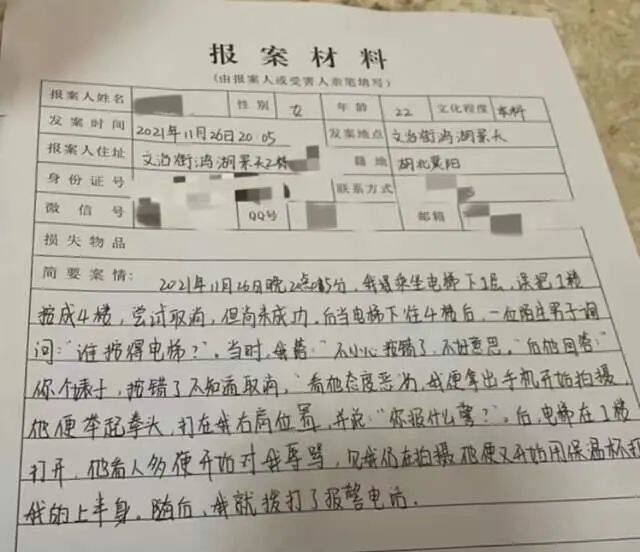 报案材料
(由报案人或受害人亲笔填写)
报案人姓名 性别 女 年龄 22 文化程度 本科
发案时间 2021年11月26日20 05 发案地点 文治街鸿湖景天
报案人住址 文治街鸿湖景天2栋 籍地 湖北襄阳
身份证号 联系方式
微信号 QQ号 邮箱
损失物品
简要案情: 2021年11月26日晚20点05分,我乘坐电梯下1层,误把1楼
按成4楼,尝试取消,但尚未成功,后当电梯下往4楼后,一位陌生男子询
问:“谁按得电梯?”。当时,我答:“不小心按错了,不好意思。”后他回答:“
你个婊子,按错了不知道取消,”看他态度恶劣,我便拿出手机开始拍摄
他便举起拳头,打在我右肩位置,并说:“你报什么警?”。后,电梯在1楼
打开,他看人多便开始对我辱骂,见我仍在拍摄他便又开始用保温杯
我的上半身。随后,我就拨打了报警电话.